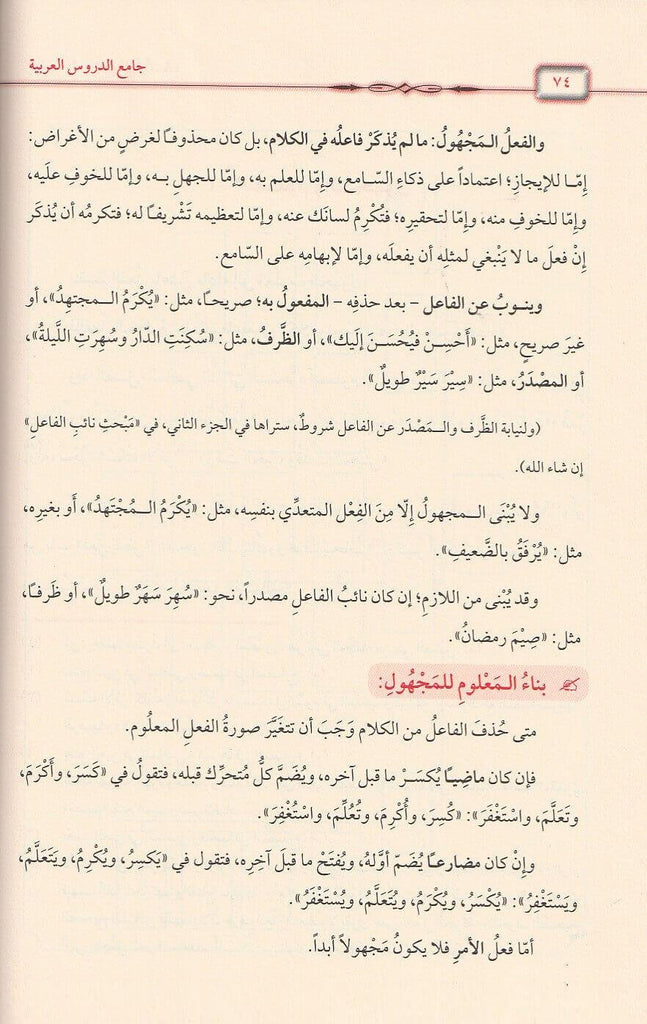 جامع الدروس العربية
٧٤
والفعلُ الـمَجْهُولُ: ما لم يُذكَرْ فاعلُه في الكلام، بل كان محذوفـًا لغرضٍ من الأغراض:
إمّـا للإيجازِ؛ اعتماداً على ذكاءِ السّـامع، وإمّا للعلم به، وإمّا للجهلِ بـه، وإمّا للخوفِ علَيه،
وإمّا للخوفِ منه، وإمّا لتحقيرِه؛ فتُكْرِمُ لسانَك عنه، وإمّا لتعظيمه تَشْريفـًا له؛ فتكرمُه أن يُذكَر
إنْ فعلَ ما لا يَنْبغي لمثلِه أن يفعلَه، وإمّا لإبهامِه على السّامع.
وينـوبُ عن الفاعل - بعد حذفِه - المفعولُ به؛ صريحـًا، مثل: «يُكْرَمُ الـمجتهِدُ»، أو
غيرَ صريحٍ، مثل: «أَحْسِـنْ فيُحْسَـنَ إلَيك»، أو الظَّرفُ، مثل: «سُكِنَتِ الدّارُ وسُهِرَتِ اللَّيلةُ»،
أو المصْدَرُ، مثل: «سِيْرَ سَيْرٌ طويلٌ».
(ولنيابة الظَّرف والـمَصْدَر عن الفاعل شروطٌ، ستراها في الجزء الثاني، في «مَبْحثِ نائبِ الفاعلِ»
إن شاء الله).
ولا يُبْنَى الـمجهولُ إلّا مِنَ الفِعْل المتعدِّي بنفسِه، مثل: «يُكْرَمُ الـمُجْتَهدُ»، أَو بغيرِه،
مثل: «يُرْفَقُ بالضَّعيفِ».
وقد يُبْنى من اللازم؛ إن كان نائبُ الفاعلِ مصدراً، نحو: «سُهِرَ سَهَرٌ طويلٌ»، أو ظَرفـًا،
مثل: «صِيْمَ رمضانُ».
بناءُ الـمَعْلومِ للمَجْهُولِ:
متى حُذفَ الفاعلُ من الكلام وَجَبَ أن تتغَيَّر صورةُ الفعلِ المعلُوم.
فإن كان ماضِيـًا يُكسَـرْ ما قبل آخره، ويُضَمَّ كلُّ مُتحرِّك قبله، فتقولُ في «كَسَرَ، وأَكْرَمَ،
وتَعَلَّمَ، واسْتَغْفَرَ»: «كُسِرَ، وأُكْرِمَ، وتُعُلِّمَ، واسْتُغْفِرَ».
وإنْ كان مضارعـًا يُضَمّ أوّلهُ، ويُفتَحْ ما قبلَ آخِرِه، فتقول في «يَكسِرُ، ويُكْرِمُ، ويَتَعَلَّمُ،
ويَسْتَغْفِرُ»: «يُكْسَرُ، ويُكْرَمُ، ويُتَعَلَّمُ، ويُسْتَغْفَرُ».
أمّا فعلُ الأمرِ فلا يكونُ مَجْهولاً أبداً.